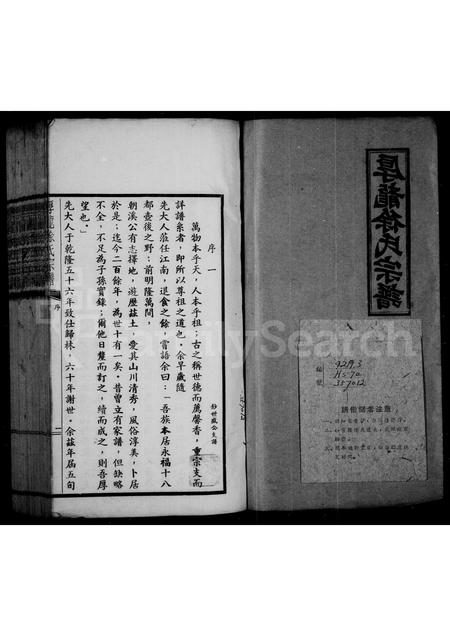 厚龍徐氏宗譜
929.3
H570
357012
請借閱者注意
抄世威公支譜
序一
萬物本乎天，人本乎祖；古之稱世德而薦馨香，重宗支而
詳譜系者，即所以尊祖之道也。余早歲隨
先大人蒞任江南，退食之餘，嘗語余曰：「吾族本居永福十八
都壺後之野；前明隆萬間，
朝溪公有志擇地，遊歷茲土，愛其山川清秀，風俗淳美，卜居
於是；迄今二百餘年，為世十有一矣。昔曾立有家譜，但缺略
不全，不足為子孫寶錄；爾他日釐而訂之，續而成之，則吾厚
望也。」
先大人于乾隆五十六年致仕歸林，六十年謝世。余茲年屆五旬
厚龍徐氏宗譜
序
一
FamilySearch